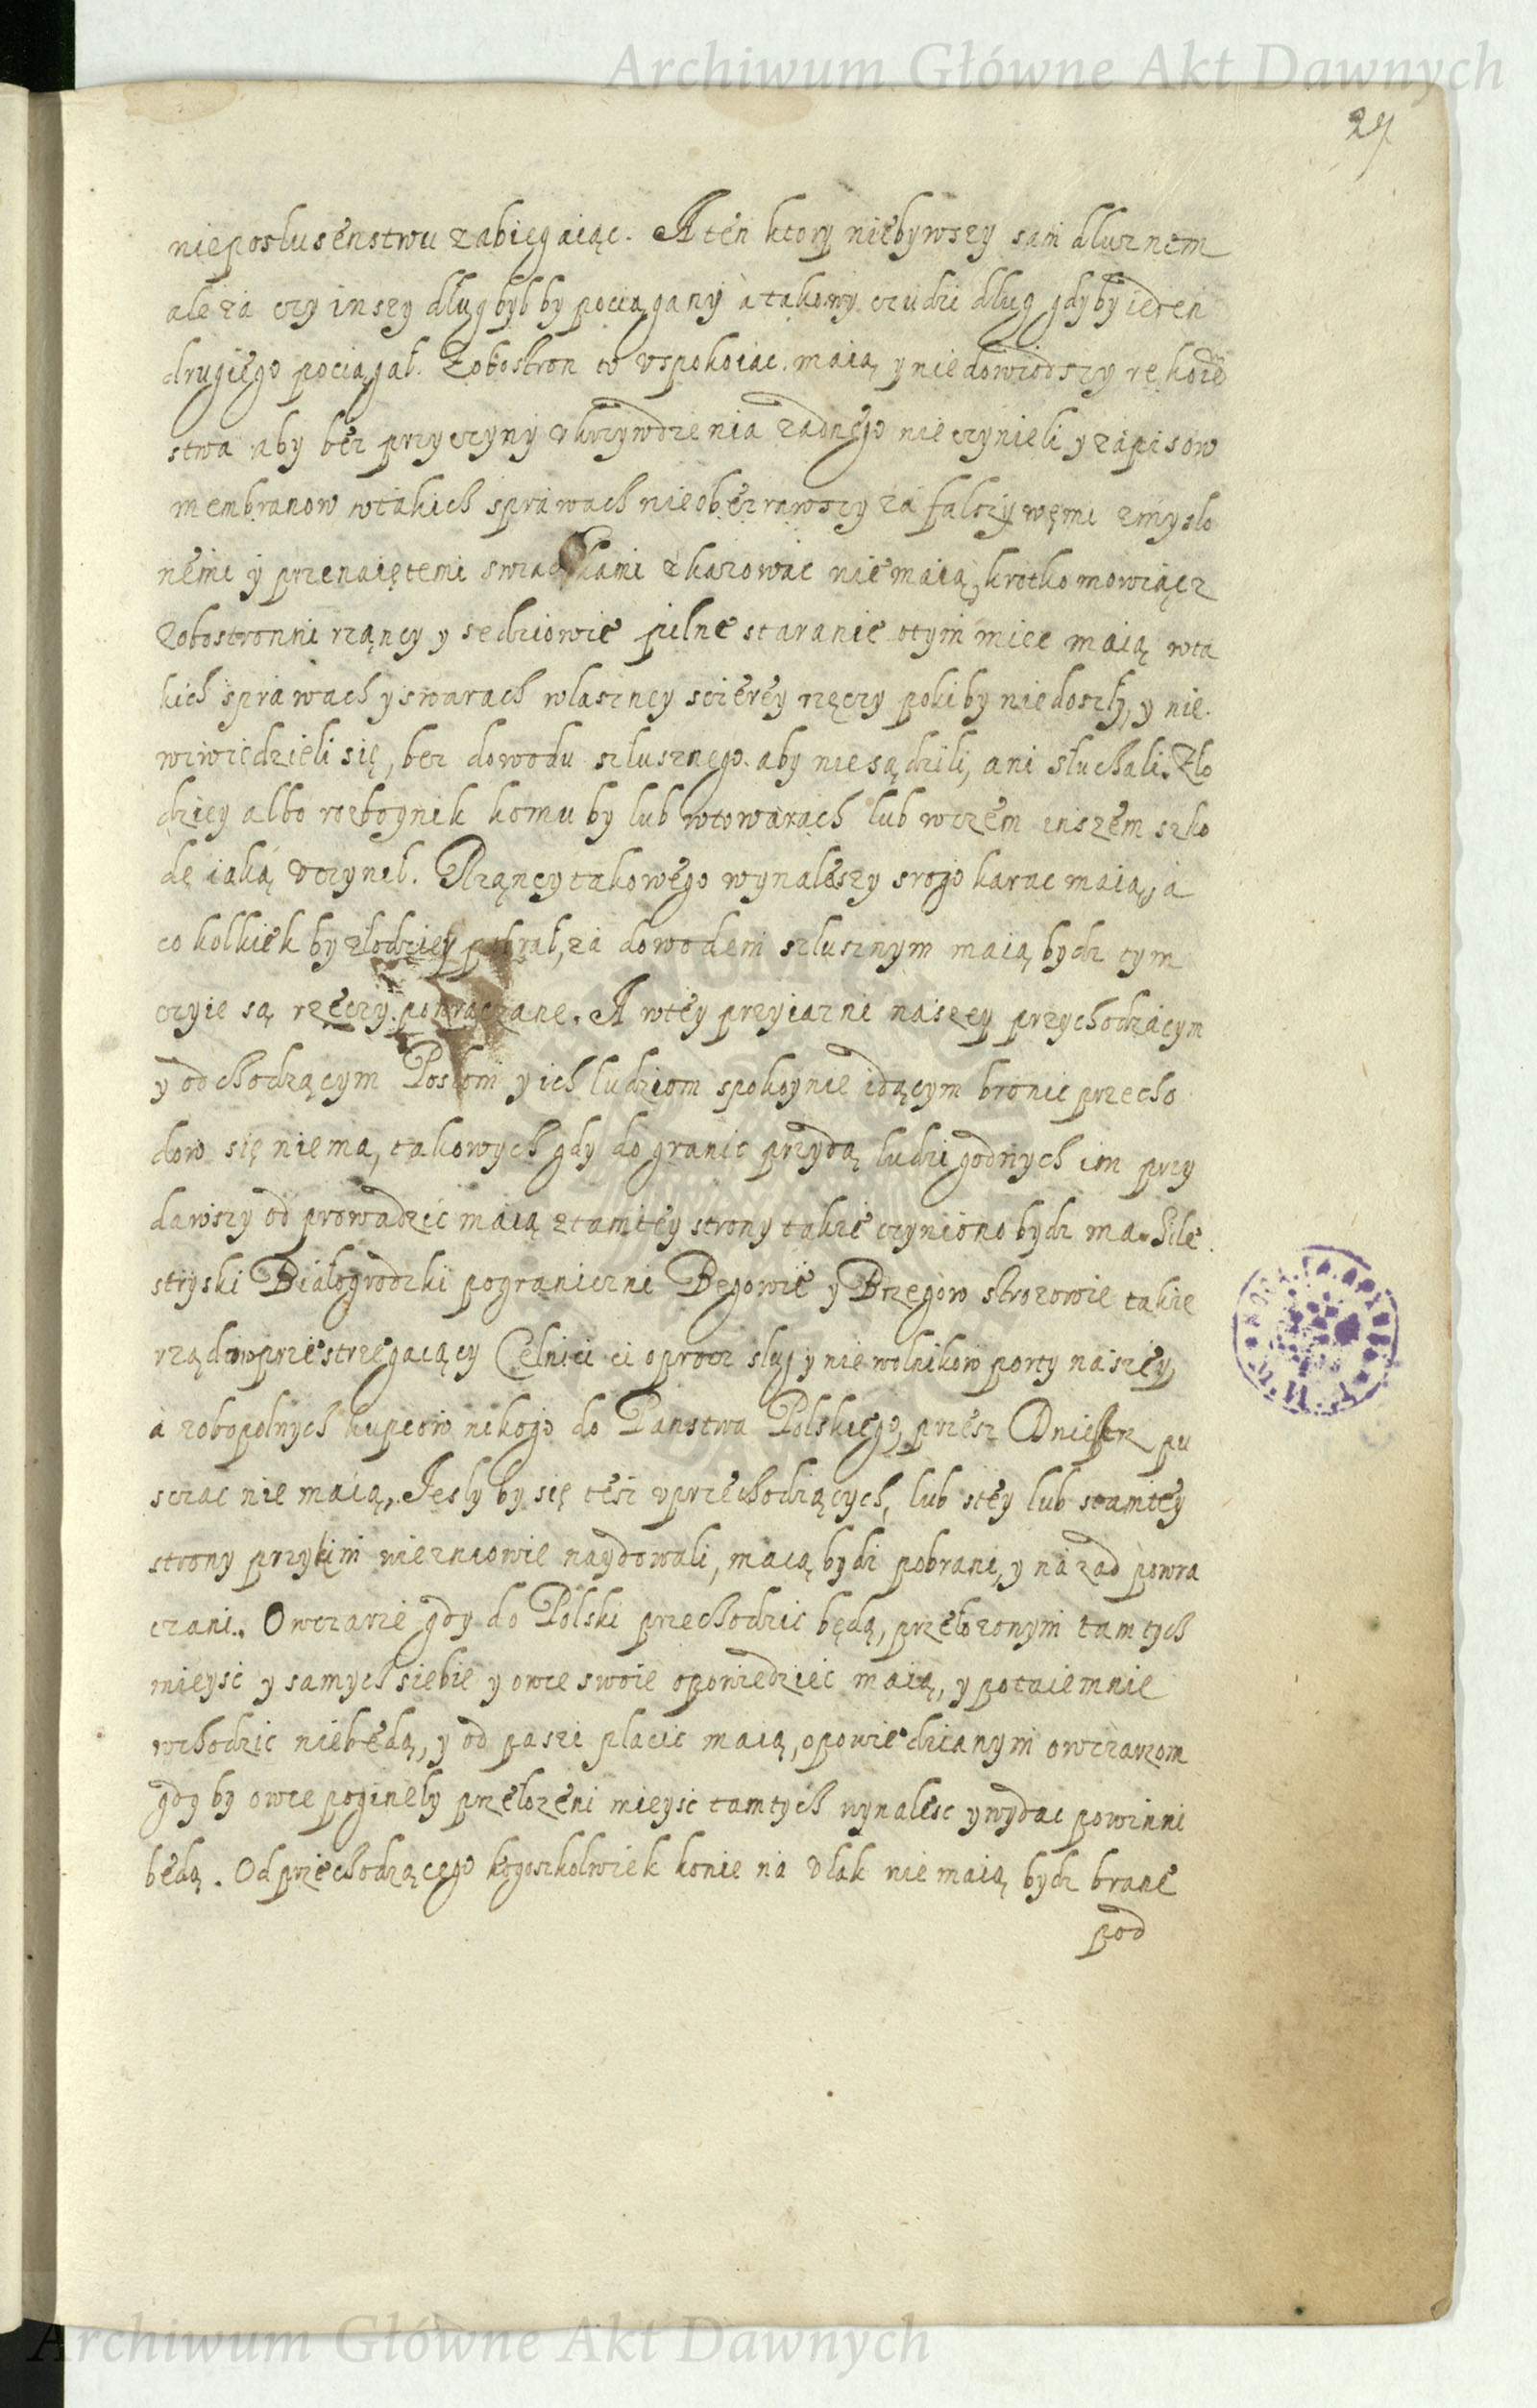 Archiwum Główne Akt Dawnych
27
nieposlusenstwu zabiegaiąc. A ten ktory niebywszy sam dlusznem
ale za czy inszy dług był by pociągany a takowy czudzi dług gdyby ieden
drugiego pociągał. Zobostron to uspokoiac maią y niedowiodszy rękoie
stwa aby bez przyczyny ukrzywdzenia zadnego nie czynieli y zapisow
membranow wtakich sprawach nieobezrawszy za falszywęmi zmyslo
nemi y przenaiętemi swiadkami zkazowac nie maią, krotko mowiącz
Zobostronni rząncy y sedziowie pilne staranie otym miec maią wta
kich sprawach y swarach wlasney sczerey rzęczy poki by niedoszly, y nie
wiwiedzieli się, bez dowodu szlusznego aby niesądzili, ani sluchali. Zlo
dzięy albo rozboynik komu by lub wtowarach lub wczem inszem szko
dę iaką uczynil. Rząncy takowego wynaleszy srogo karac maią, a
co kolkiek by złodziey pobrał, za dowodem szlusznym maią bydz tym
czyie są rzeczy powraczane. A wtey przyiazni naszey przychodzącym
y odchodzącym Posłom y ich ludziom spokoynie idącym bronic przecho
dow się niema, takowych gdy do granic przydą ludzi godnych im przy
dawszy odprowadzic maią z tamtey strony takze czyniono bydz ma. Sile
stryski Białogrodzki pograniczni Begowie y Brzegow strozowie takze
rządow przestrzegaiący Celnici ci oprocz slug y niewolnikow porty naszey
a zobopolnych kupcow nikogo do Panstwa Polskiego, przesz Dniestr pu
sczac nie maią. Jesly by się tesz uprzechodzących, lub stey lub stamtey
strony przykim wiezniowie naydowali, maią bydz pobrani, y nazad powra
czani. Owczarze gdy do Polski przechodzic będą, przełozonym tamtych
mieysc y samych siebie y owce swoie opowiedziec maią, y potaiemnie
wchodzic niebędą, y od paszi placic maią, opowiedzianym owczarzom
gdy by owce poginely przelozeni mieysc tamtych wynalesc y wydac powinni
będą. Od przechodzącego kogoszkolwiek konie na Ulak nie maią bydz brane
pod
Archiwum Główne Akt Dawnych